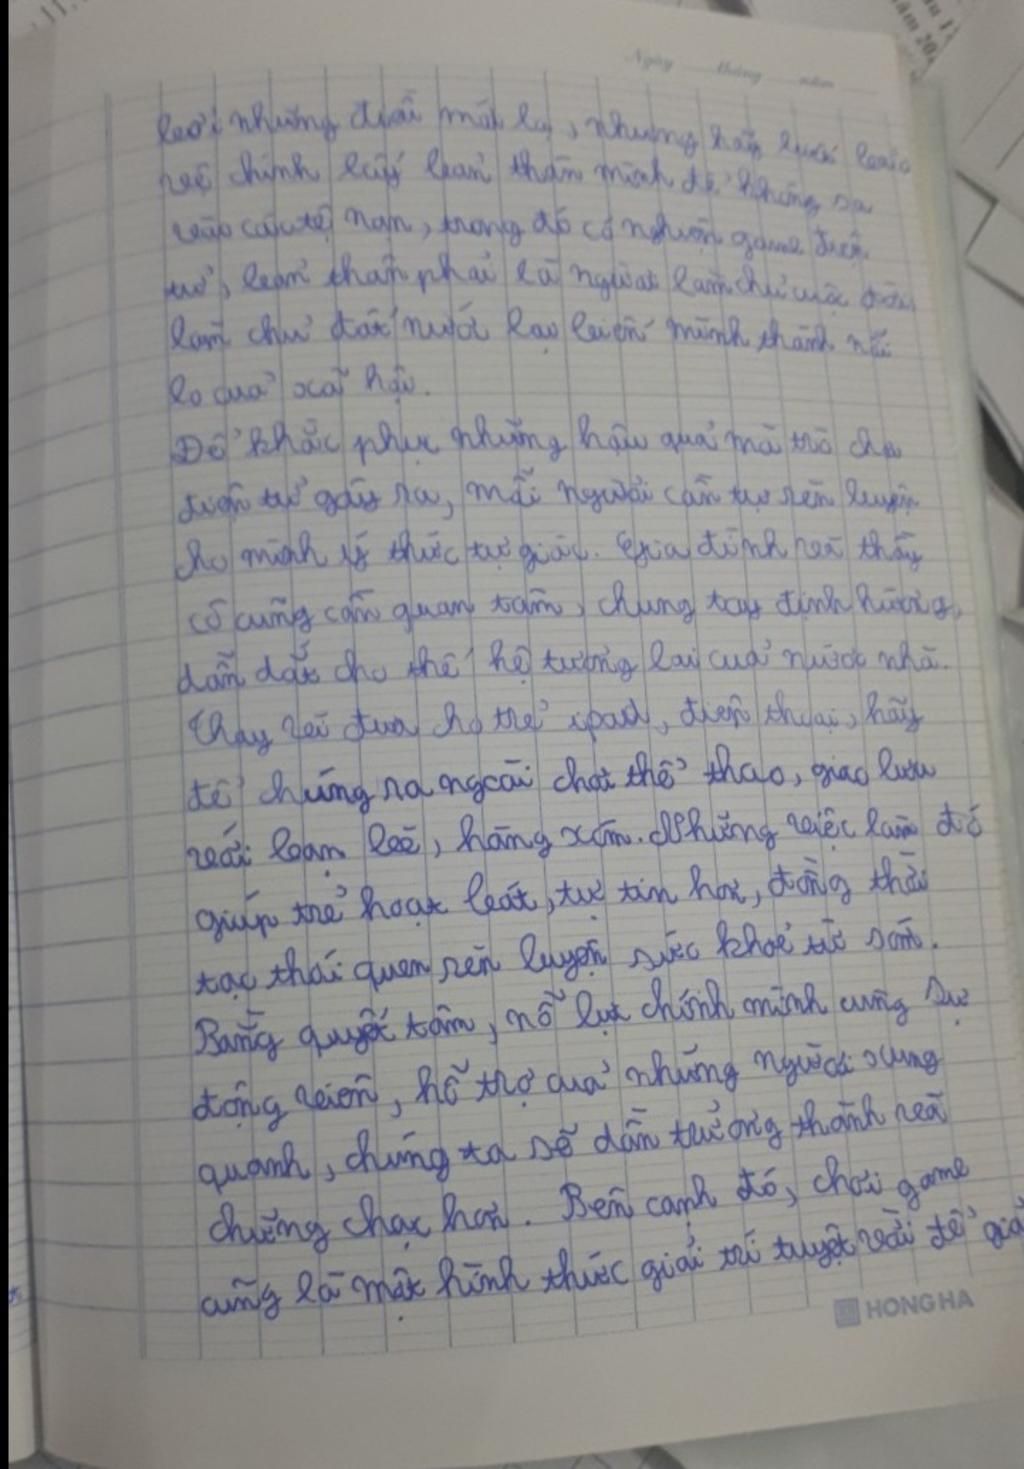 Ngày tháng năm
bởi những điều mới lạ, nhưng hãy luôn bảo
vệ chính lấy bản thân mình để không sa
vào các tệ nạn, trong đó có nghiện game điện
tử, bản thân phải là người làm chủ cuộc đời,
làm chủ đất nước lại biến mình thành nỗi
lo của xã hội.
Để khắc phục những hậu quả mà trò chơi
điện tử gây ra, mỗi người cần tự rèn luyện
cho mình ý thức tự giác. Gia đình và thầy
cô cũng cần quan tâm, chung tay định hướng,
dẫn dắt cho thế hệ tương lai của nước nhà.
Thay vì đưa cho trẻ ipad, điện thoại, hãy
để chúng ra ngoài chơi thể thao, giao lưu
với bạn bè, hàng xóm. Những việc làm đó
giúp trẻ hoạt bát, tự tin hơn, đồng thời
tạo thói quen rèn luyện sức khoẻ từ sớm.
Bằng quyết tâm, nỗ lực chính mình cùng sự
động viên, hỗ trợ của những người xung
quanh, chúng ta sẽ dần trưởng thành và
chững chạc hơn. Bên cạnh đó, chơi game
cũng là một hình thức giải trí tuyệt vời để giả
HONG HA